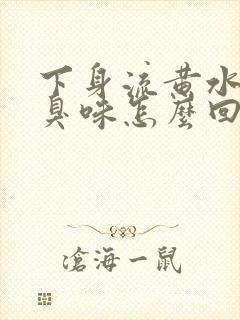 下身流黄水
臭味怎麼回
滄海一鼠